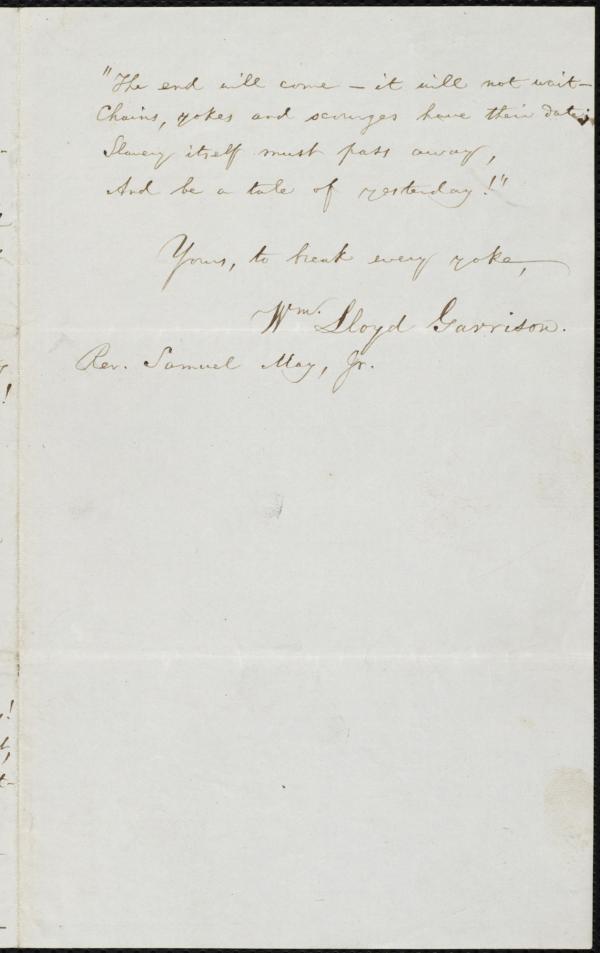 "The end will come – it will not wait –
Chains, yokes and scourges have their date;
Slavery itself must pass away,
And be a tale of yesterday!"
Yours, to break every yoke,
Wm. Lloyd Garrison.
Rev. Samuel May, Jr.